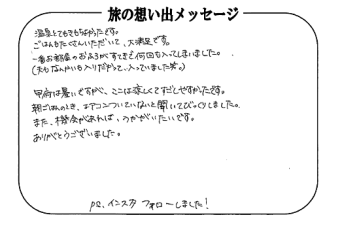 旅の想い出メッセージ
温泉とてもきもちよかったです。
ごはんもたくさんいただいて、大満足です。
一番お部屋のおふろがすてきで何回も入ってしまいました。
(夫もなんかいも入りだがって、入っていました笑。)
甲府は暑いですが、ここは涼しくてすごしやすかったです。
朝ごはんのとき、エアコンついていないと聞いてびっくりしました。
また、機会があれば、うかがいたいです。
ありがとうございました。
P.S. インスタ フォローしました!